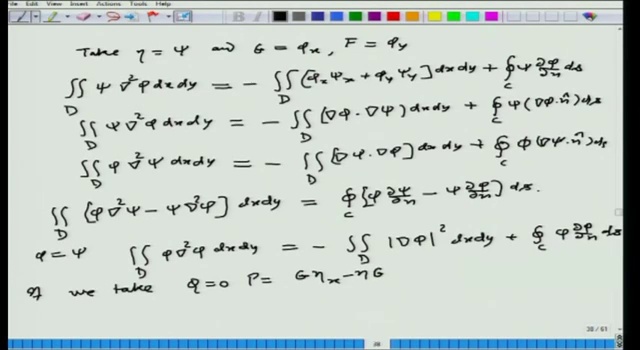 Take η = Ψ and G = φₓ, F = φᵧ
∬_D Ψ ∇²φ dxdy = − ∬_D [φₓΨₓ + φᵧΨᵧ] dxdy + ∮_C Ψ ∂φ/∂n ds
∬_D Ψ ∇²φ dxdy = − ∬_D (∇φ · ∇Ψ) dxdy + ∮_C Ψ (∇φ · n̂) ds
∬_D φ ∇²Ψ dxdy = − ∬_D [∇φ · ∇φ] dxdy + ∮_C φ (∇Ψ · n̂) ds
∬_D [φ∇²Ψ − Ψ∇²φ] dxdy = ∮_C [φ ∂Ψ/∂n − Ψ ∂φ/∂n] ds.
φ = Ψ ∬_D φ ∇²φ dxdy = − ∬_D |∇φ|² dxdy + ∮_C φ ∂φ/∂n ds
If we take Q = 0 P = Gηₓ − ηG